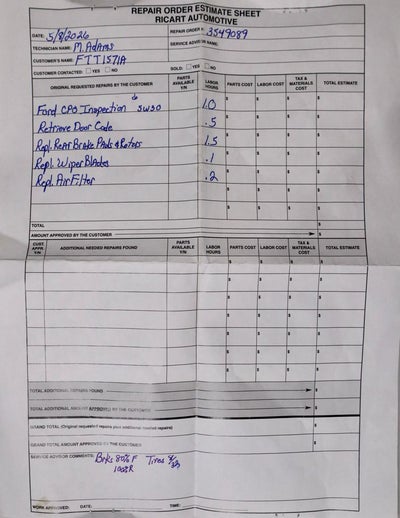 REPAIR ORDER ESTIMATE SHEET
RICART AUTOMOTIVE
DATE: 5/8/2026 REPAIR ORDER #: 3549089
TECHNICIAN NAME: M. Adams SERVICE ADVISOR NAME:
CUSTOMER'S NAME: FTT1571A
CUSTOMER CONTACTED: YES NO SOLD: YES NO
ORIGINAL REQUESTED REPAIRS BY THE CUSTOMER PARTS AVAILABLE Y/N LABOR HOURS PARTS COST LABOR COST TAX & MATERIALS COST TOTAL ESTIMATE
Ford CPO Inspection 5W30 1.0 $ $ $ $
Retrieve Door Code .5 $ $ $ $
Repl. Rear Brake Pads & Rotors 1.5 $ $ $ $
Repl. Wiper Blades .1 $ $ $ $
Repl. Air Filter .2 $ $ $ $
$ $ $ $
TOTAL $
AMOUNT APPROVED BY THE CUSTOMER $
CUST. APPR. Y/N ADDITIONAL NEEDED REPAIRS FOUND PARTS AVAILABLE Y/N LABOR HOURS PARTS COST LABOR COST TAX & MATERIALS COST TOTAL ESTIMATE
$ $ $ $
$ $ $ $
$ $ $ $
$ $ $ $
$ $ $ $
$ $ $ $
TOTAL ADDITIONAL REPAIRS FOUND $
TOTAL ADDITIONAL AMOUNT APPROVED BY THE CUSTOMER $
GRAND TOTAL (Original requested repairs plus additional needed repairs) $
GRAND TOTAL AMOUNT APPROVED BY THE CUSTOMER $
SERVICE ADVISOR COMMENTS: Brks 80% F Tires
100% R
WORK APPROVED: DATE: TIME: